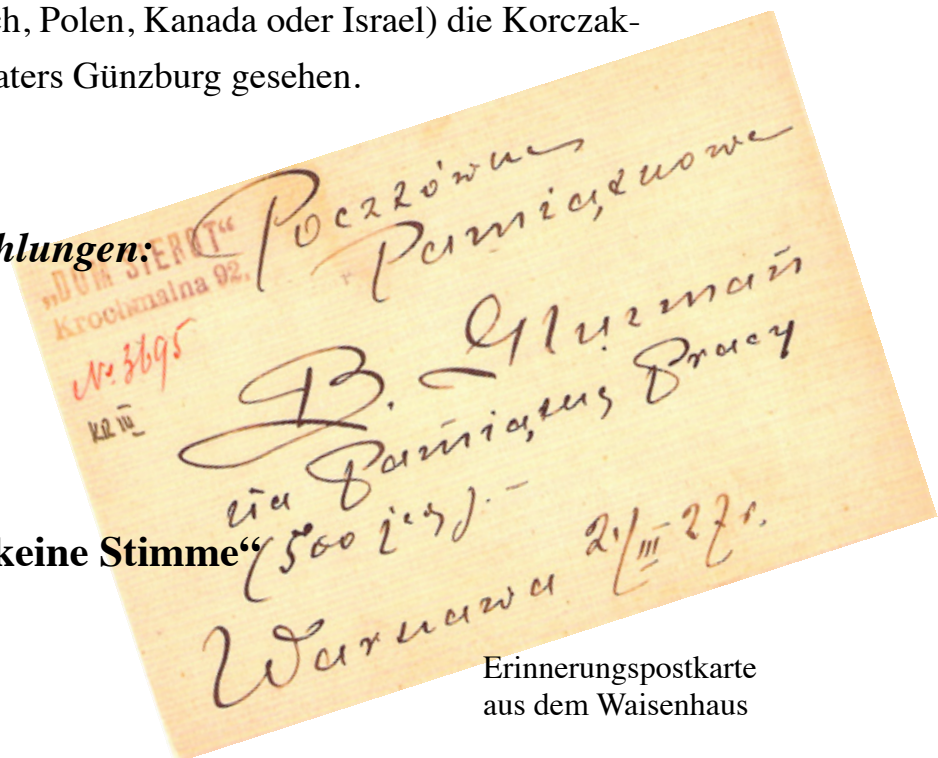 ch, Polen, Kanada oder Israel) die Korczak-
aters Günzburg gesehen.
hlungen:
„DOM SIEROT“
Krochmalna 92,
№ 3695
KR IV
Pocztówka
Pamiątkowa
B.
na Pamiątkę Pracy
(500 jedn.). –
Warszawa 2/III 27 r.
keine Stimme“
Erinnerungspostkarte
aus dem Waisenhaus